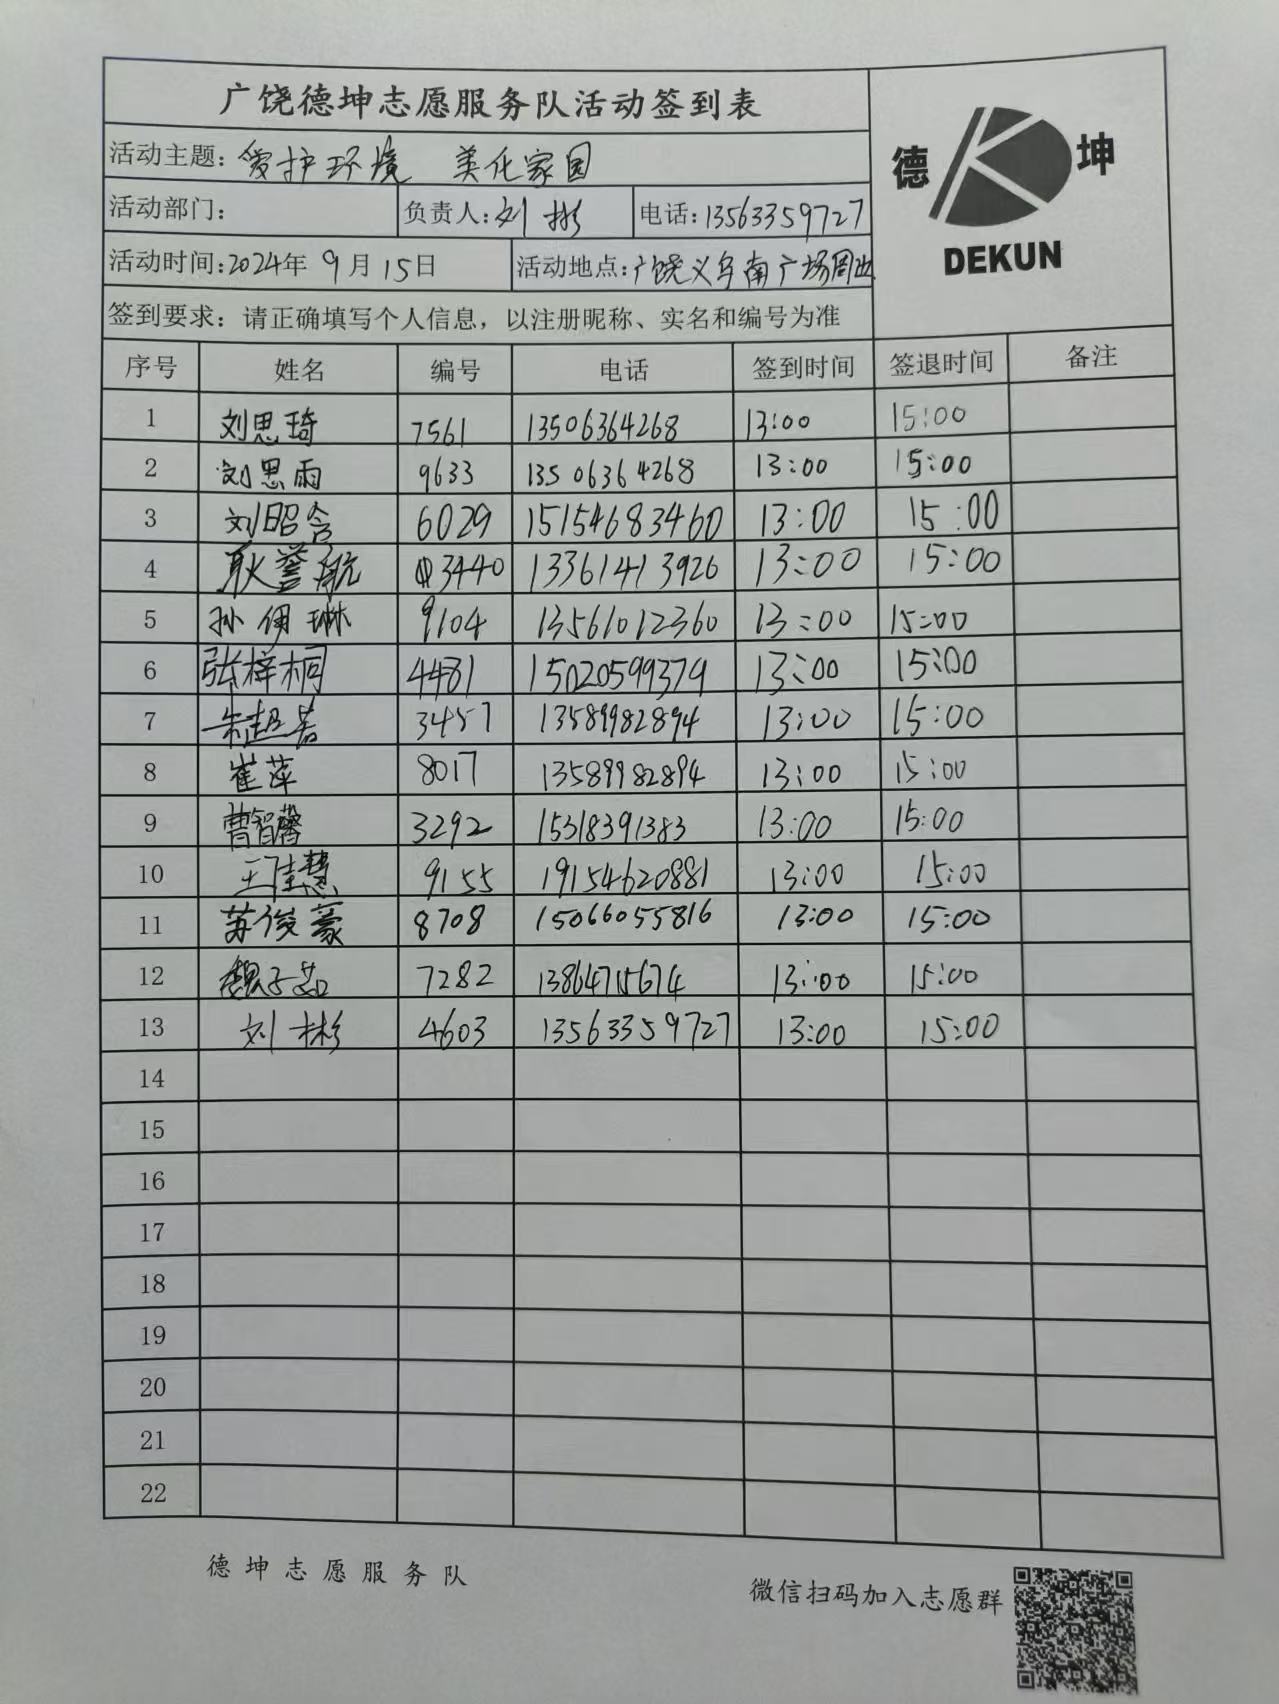 广饶德坤志愿服务队活动签到表
德 坤
DEKUN
活动主题：爱护环境 美化家园
活动部门： 负责人：刘彬 电话：13563359727
活动时间：2024年 9月 15日 活动地点：广饶义乌南广场周边
签到要求：请正确填写个人信息，以注册昵称、实名和编号为准
序号 姓名 编号 电话 签到时间 签退时间 备注
1 刘思琦 7561 13506364268 13:00 15:00
2 刘思雨 9633 13506364268 13:00 15:00
3 刘昭含 6029 15154683460 13:00 15:00
4 耿誉航 3440 13361413926 13:00 15:00
5 孙伊琳 9104 13561012360 13:00 15:00
6 张梓桐 4481 15020599379 13:00 15:00
7 朱赵若 3457 13589982894 13:00 15:00
8 崔萍 8017 13589982894 13:00 15:00
9 曹智馨 3292 15318391383 13:00 15:00
10 王佳慧 9155 19154620881 13:00 15:00
11 苏俊豪 8708 15066055816 13:00 15:00
12 魏子茹 7282 13864715674 13:00 15:00
13 刘彬 4603 13563359727 13:00 15:00
14
15
16
17
18
19
20
21
22
德坤志愿服务队
微信扫码加入志愿群